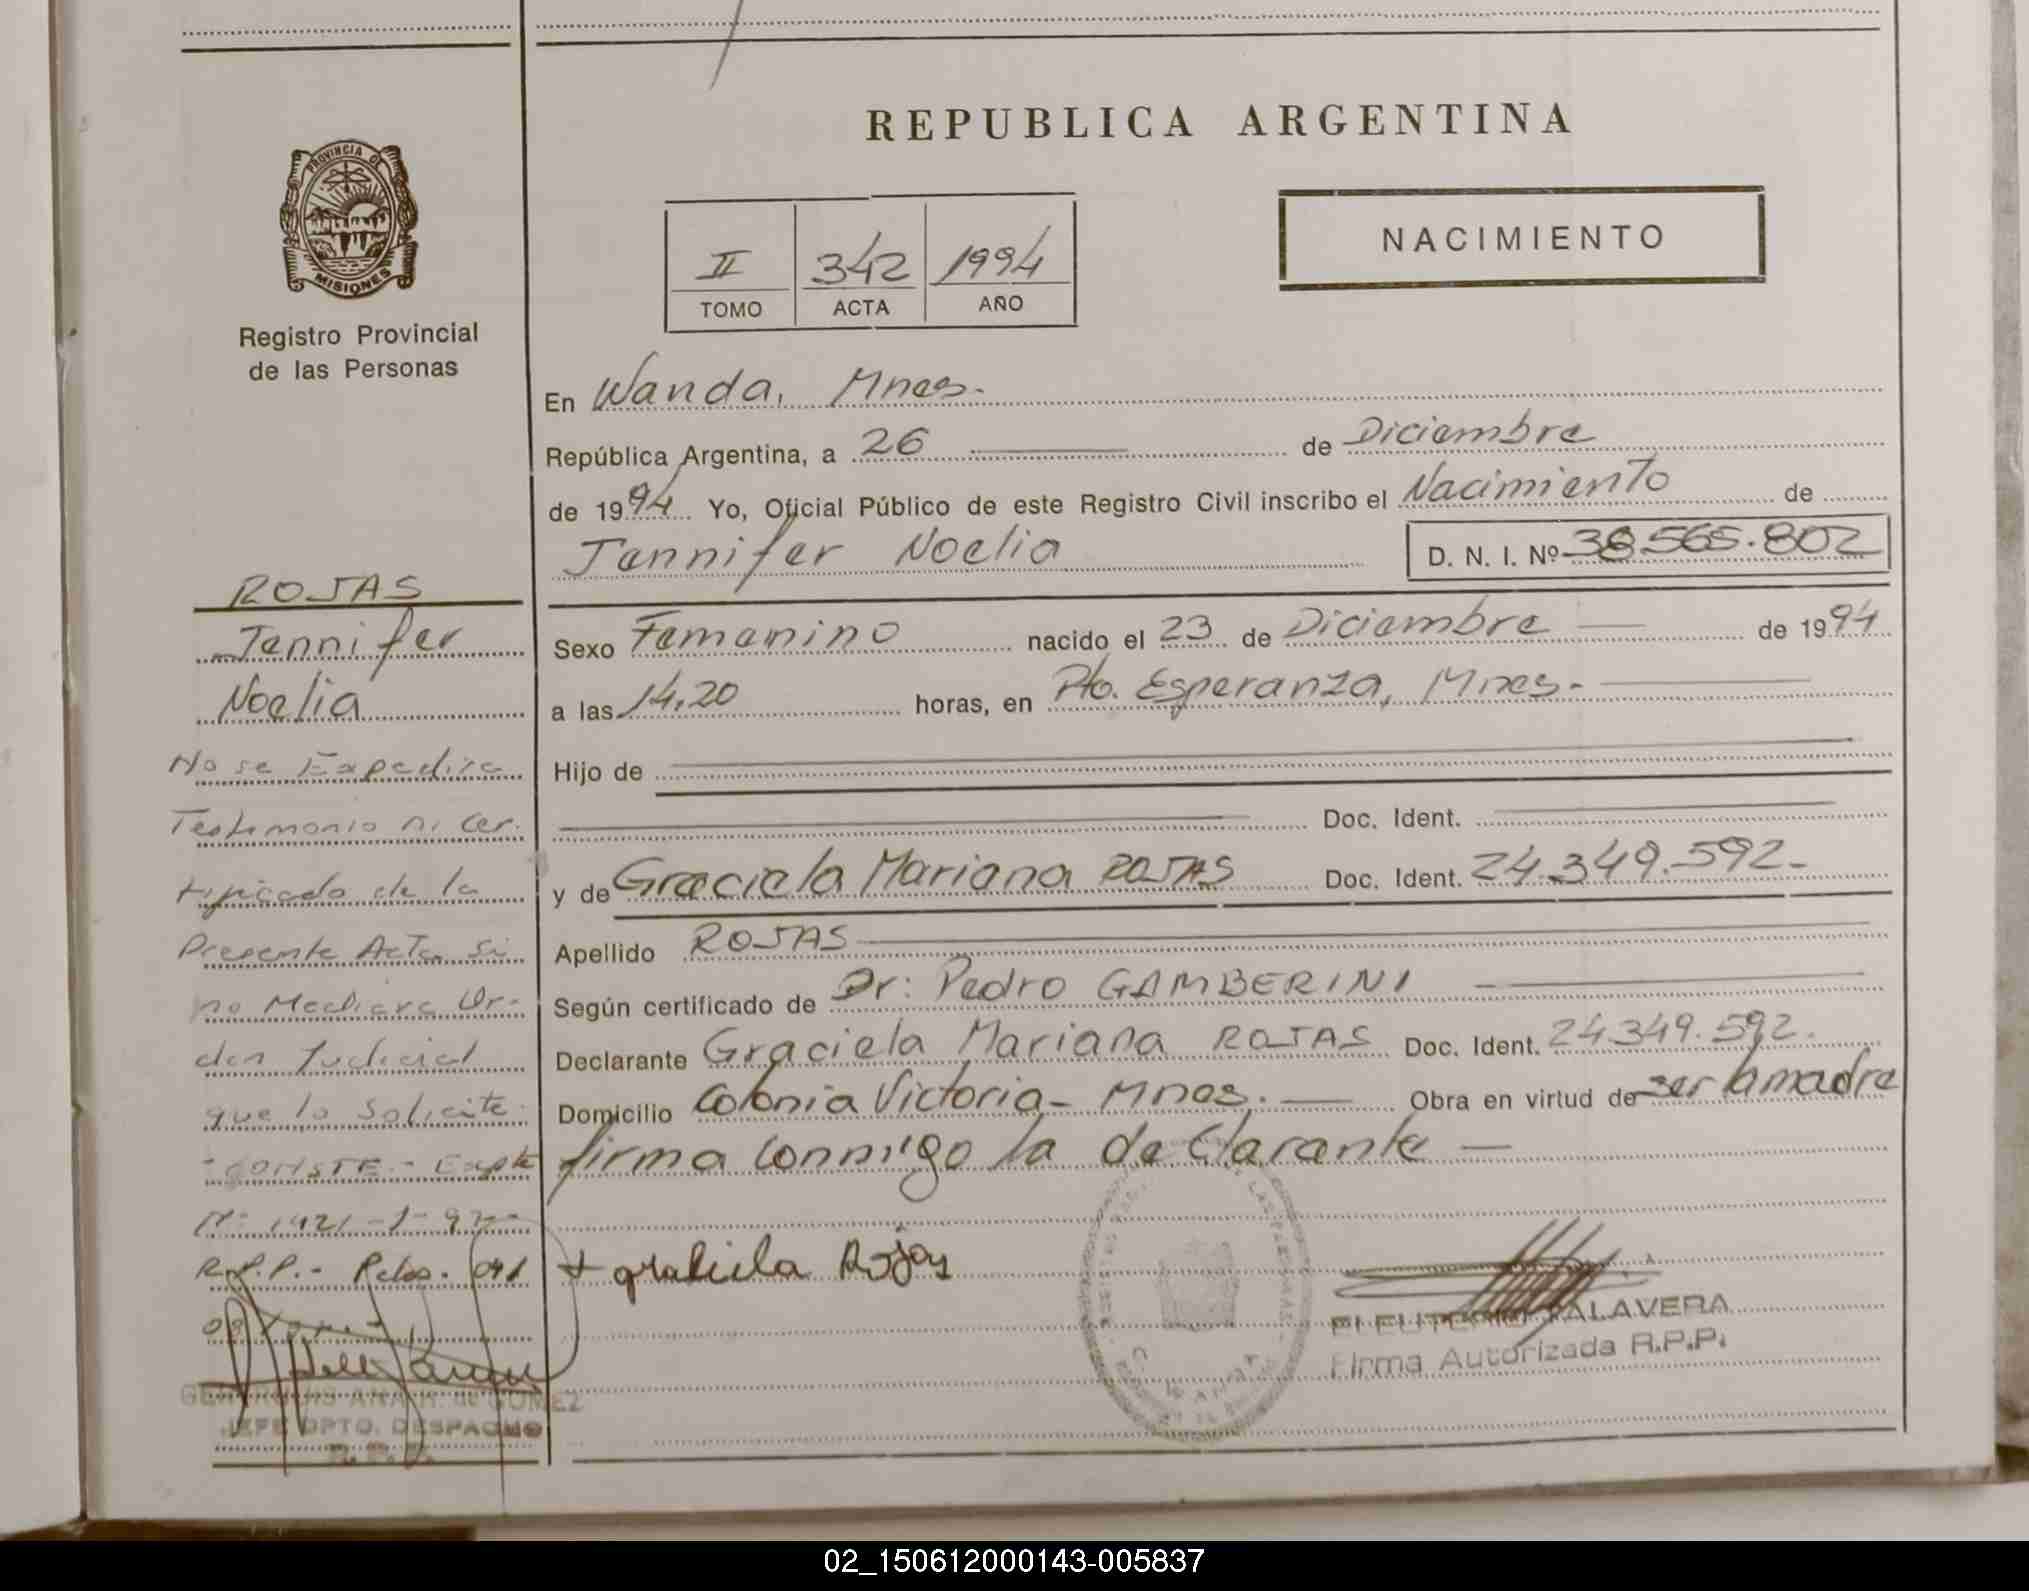 REPUBLICA ARGENTINA
PROVINCIA DE
MISIONES
Registro Provincial
de las Personas
II 342 1994
TOMO ACTA AÑO
NACIMIENTO
En Wanda, Mnes.
República Argentina, a 26 de Diciembre
de 1994 Yo, Oficial Público de este Registro Civil inscribo el Nacimiento de
Jennifer Noelia D. N. I. Nº 38.565.802
Sexo Femenino nacido el 23 de Diciembre de 1994
a las 14,20 horas, en Pto. Esperanza, Mnes.-
Hijo de
Doc. Ident.
y de Graciela Mariana ROJAS Doc. Ident. 24.349.592-
Apellido ROJAS
Según certificado de Dr: Pedro GAMBERINI
Declarante Graciela Mariana ROJAS Doc. Ident. 24.349.592.
Domicilio Colonia Victoria - Mnes. Obra en virtud de ser la madre
firma conmigo la declarante
+ graciela Rojas
ELEUTERIO TALAVERA
Firma Autorizada R.P.P.
ROJAS
Jennifer
Noelia
No se Expedira
Testimonio ni Cer.
tificado de la
Presente Acta si
no Mediara Or-
den Judicial
que lo Solicite.
-CONSTE.- Expte
Nº 1421-
R.P.P.-
ANA M. de GOMEZ
JEFE DPTO. DESPACHO
R. P. P.
02_150612000143-005837